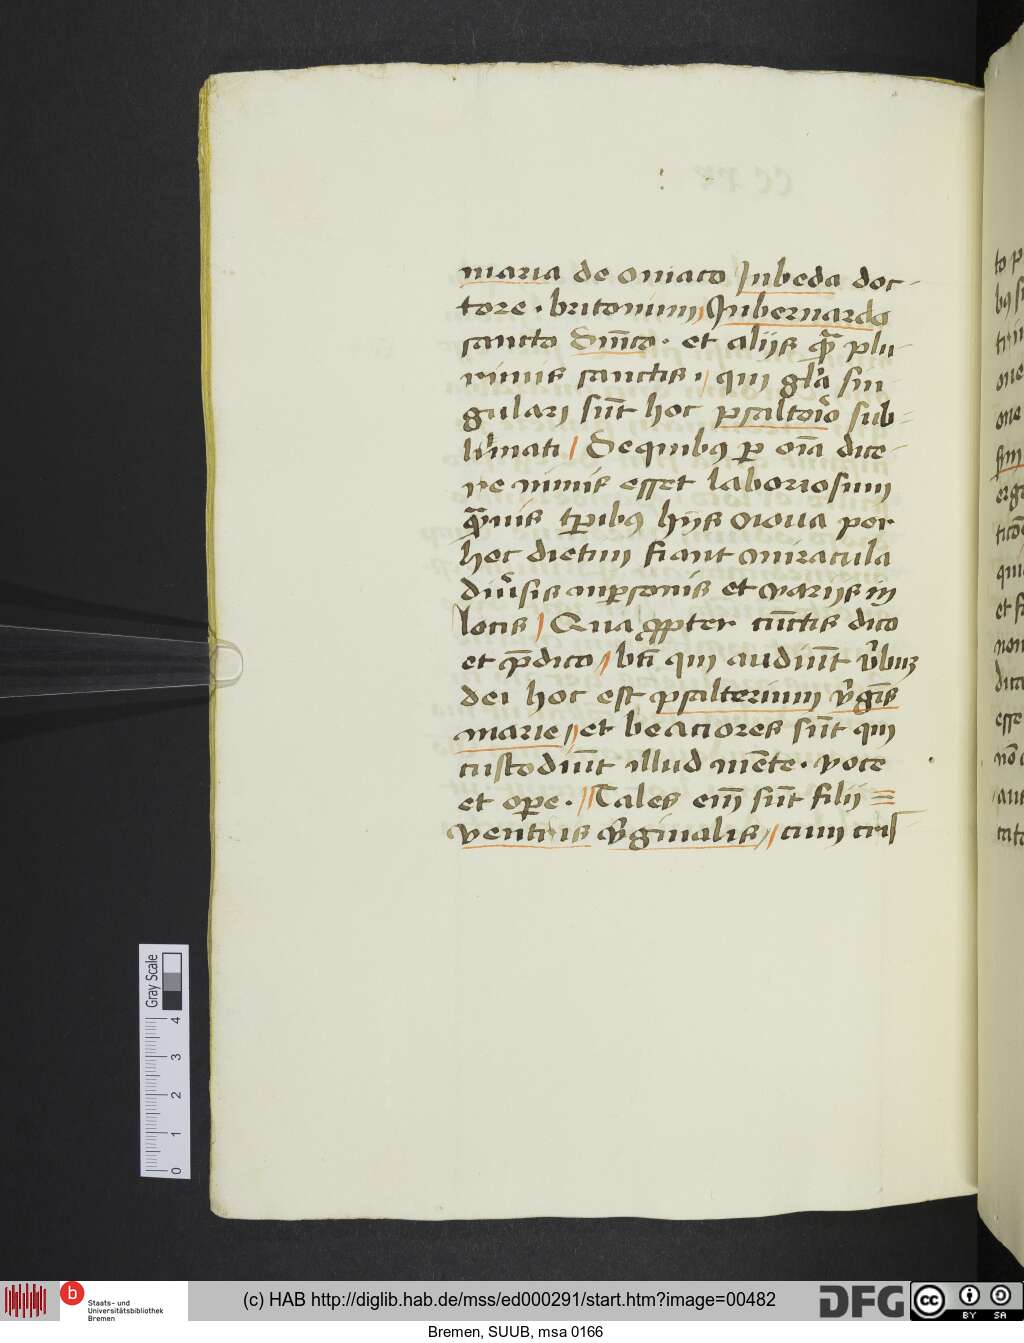 maria de oniaco Jnbeda doc-
tore · britonum / Jnbernardo
sancto Dm̄co · et alijs qᷓ plu-
rimis sanctis · / qui gl̄a sin-
gulari sūt hoc psaltoio sub-
limati / De quibꝯ ꝑ oīa dice-
re nimis esset laboriosum
qᷓuis tꝑibꝯ hijs noua per
hoc dietim fiant miracula
diūsis in ꝑsonis et varijs in
locis / Qua ꝓpter cūctis dico
et p̄dico // bt̄i qui audiūt v̄buꝫ
dei hoc est psalterium v̄gīs
marie // et beatiores sūt qui
custodiūt illud mēte · voce
et oꝑe · // Tales em̄ sūt filij
ventris v̄ginalis // cum cris
CC
to p
Gray Scale
0 1 2 3 4
b Staats- und
Universitätsbibliothek
Bremen
(c) HAB http://diglib.hab.de/mss/ed000291/start.htm?image=00482
DFG
cc BY SA
Bremen, SUUB, msa 0166